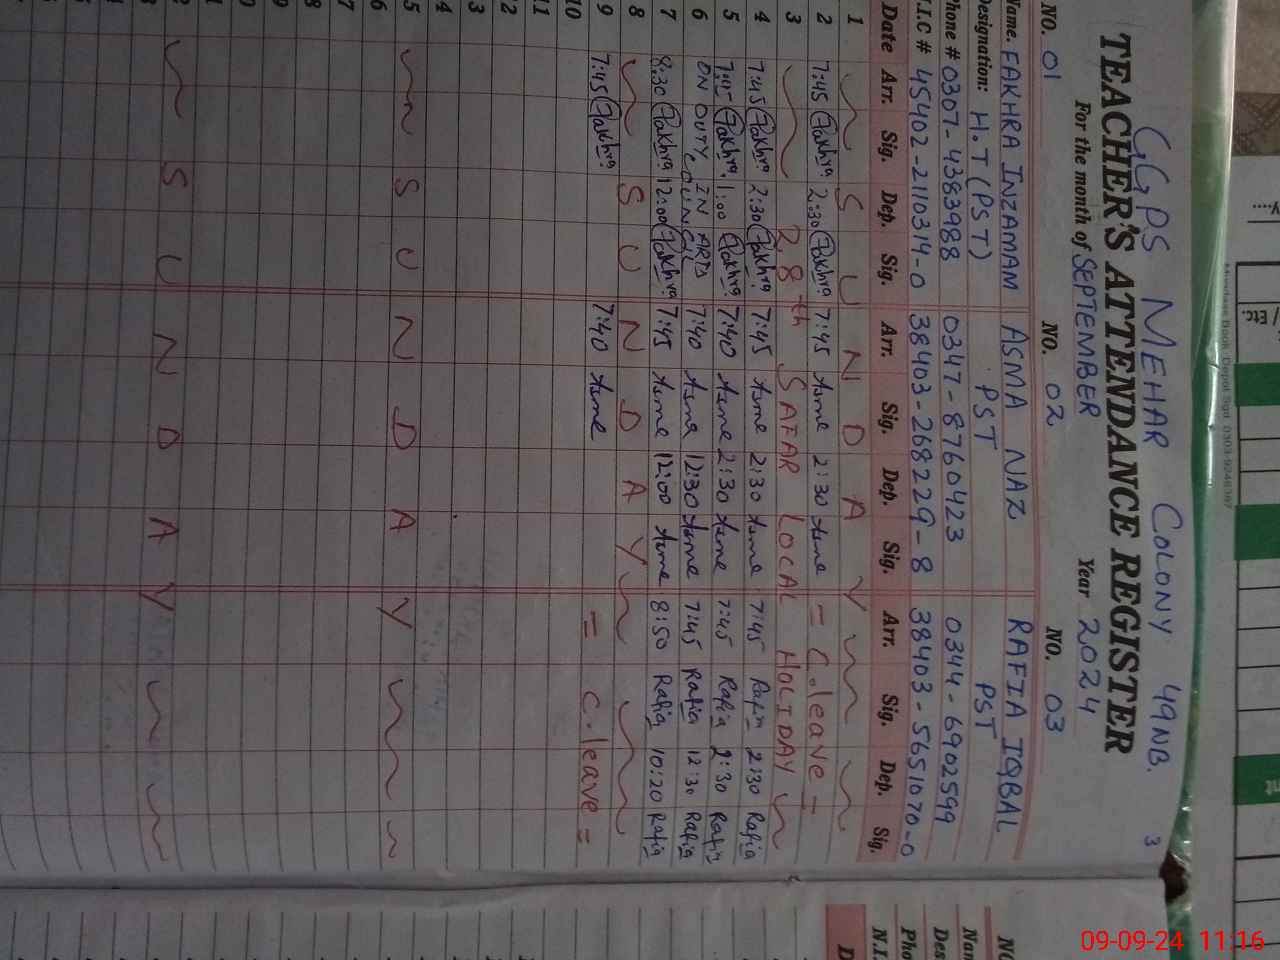 3
GGPS MEHAR COLONY 49NB.
TEACHER'S ATTENDANCE REGISTER
For the month of SEPTEMBER Year 2024
NO. 01 NO. 02 NO. 03
Name. FAKHRA INZAMAM ASMA NAZ RAFIA IQBAL
Designation: H.T (PST) PST PST
Phone # 0307-4383988 0347-8760423 0344-6902599
N.I.C # 45402-2110314-0 38403-268229-8 38403-5651070-0
Date Arr. Sig. Dep. Sig. Arr. Sig. Dep. Sig. Arr. Sig. Dep. Sig.
1 SUNDAY
2 7:45 Fakhra 2:30 Fakhra 7:45 Asme 2:30 Asme = C.leave =
3 28th SAFAR LOCAL HOLIDAY
4 7:45 Fakhra 2:30 Fakhra 7:45 Asme 2:30 Asme 7:45 Rafia 2:30 Rafia
5 7:45 Fakhra 1:00 Fakhra 7:40 Asme 2:30 Asme 7:45 Rafia 2:30 Rafia
6 ON DUTY IN ARTS COUNCIL 7:40 Asma 12:30 Asme 7:45 Rafia 12:30 Rafia
7 8:30 Fakhra 12:00 Fakhra 7:45 Asme 12:00 Asme 8:50 Rafia 10:20 Rafia
8 SUNDAY
9 7:45 Fakhra 7:40 Asme = C.leave =
10
11
12
3
4
5 SUNDAY
6
7
8
9
0
1
2 SUNDAY
3
Etc.
09-09-24 11:16